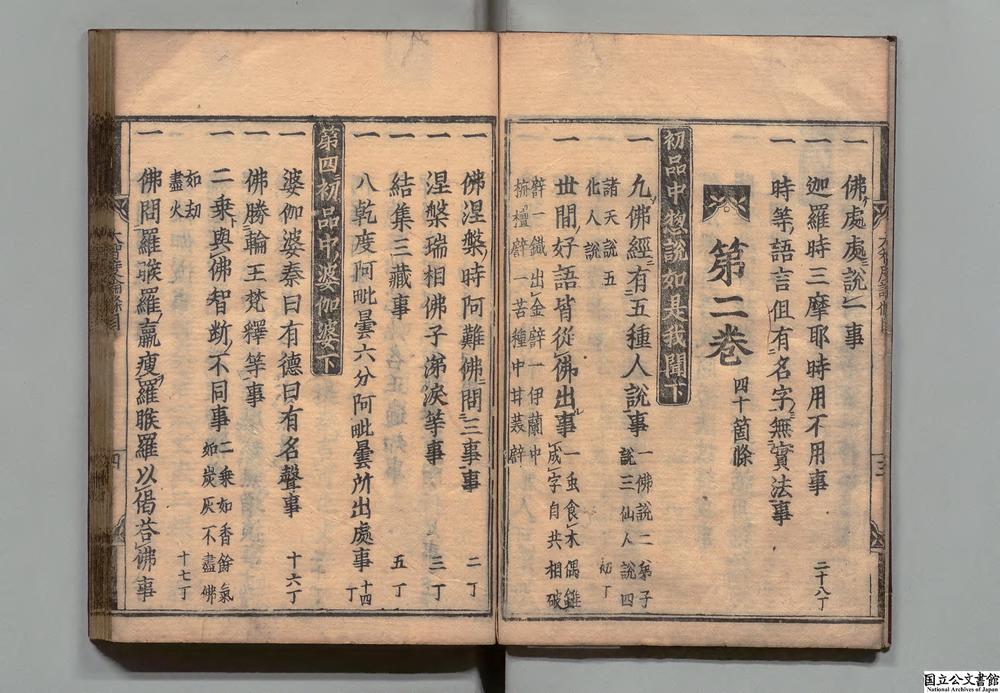 一 佛處處說一事
一 迦羅時三摩耶時用不用事
一 時等語言但有名字無實法事 二十八丁
第二卷 四十箇條
初品中惣說如是我聞下
一 凢佛經有五種人說事 一佛說二弟子說三仙人說四諸天說五化人說 初丁
一 世間好語皆從佛出事 一虫食木偶雖成字自共相破
譬一鐵出金譬一伊蘭中栴檀譬一苦種中甘菓譬
一 佛涅槃時阿難佛問三事事 二丁
一 涅槃瑞相佛子涕淚等事 三丁
一 結集三藏事 五丁
一 八乾度阿毗曇六分阿毗曇所出處事 十四丁
第四初品中婆伽婆下
一 婆伽婆秦曰有德曰有名聲事 十六丁
一 佛勝輪王梵釋等事
一 二乘與佛智斷不同事 二乘如香餘氣如炭灰不盡佛如劫盡火 十七丁
一 佛問羅睺羅羸瘦羅睺羅以偈荅佛事
国立公文書館
National Archives of Japan